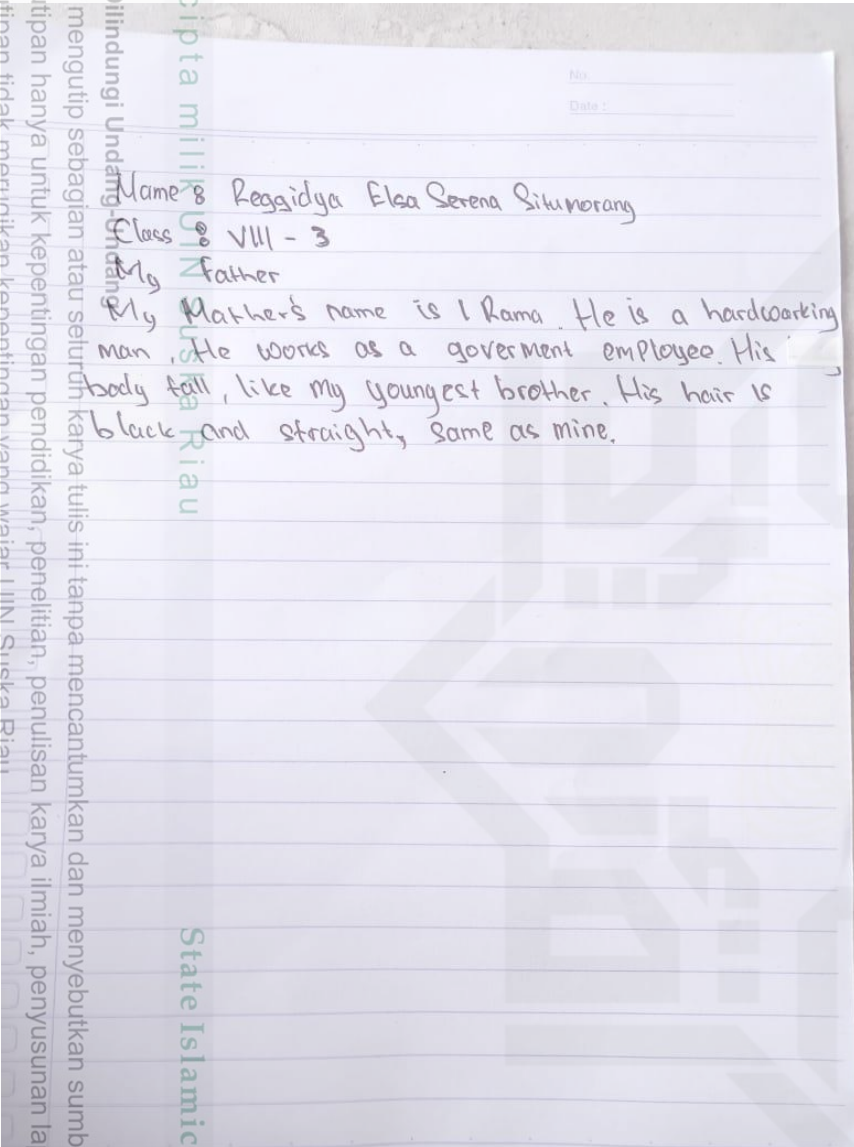 No.
Date :
Name : Reggidya Elsa Serena Situmorang
Class : VIII - 3
My Father
My Mather's name is I Rama. He is a hardwoarking
man. He works as a goverment employee. His
body tall, like my youngest brother. His hair is
black and straight, same as mine.
cipta milik UIN Suska Riau
State Islamic
Dilindungi Undang-Undang
mengutip sebagian atau seluruh karya tulis ini tanpa mencantumkan dan menyebutkan sumb
utipan hanya untuk kepentingan pendidikan, penelitian, penulisan karya ilmiah, penyusunan la
utipan tidak merugikan kepentingan yang wajar UIN Suska Riau